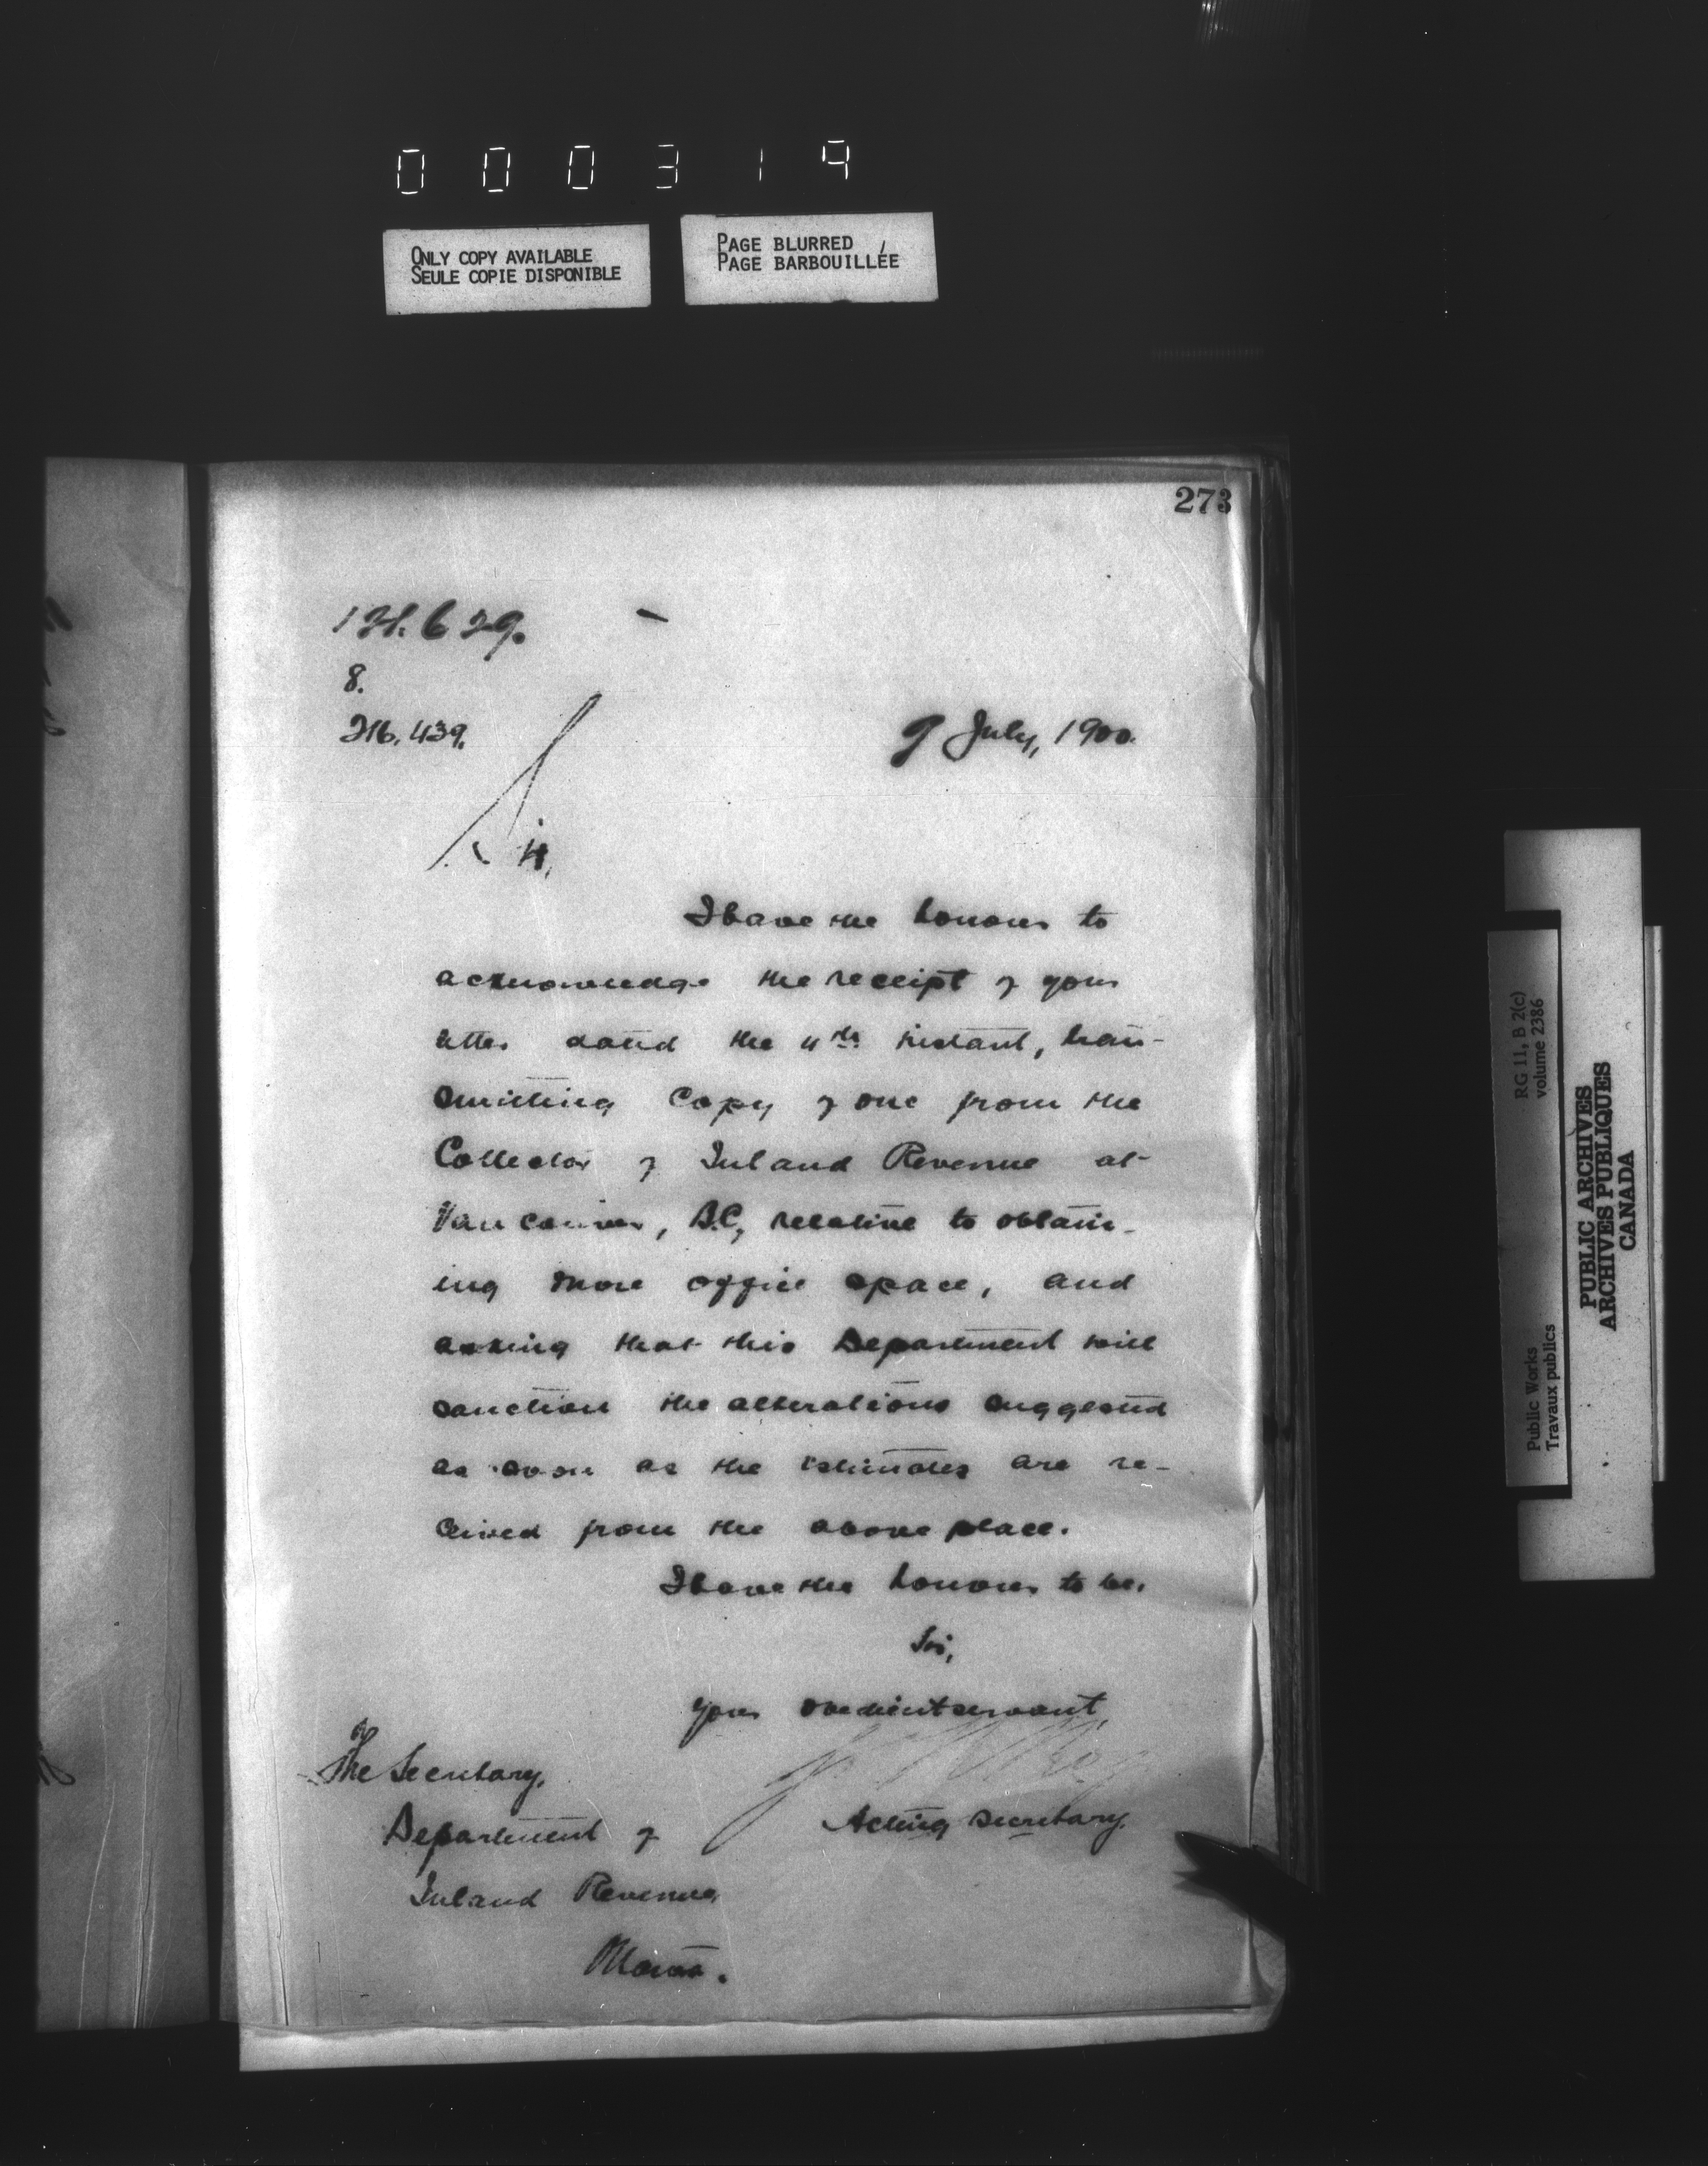 000319
ONLY COPY AVAILABLE
SEULE COPIE DISPONIBLE
PAGE BLURRED
PAGE BARBOUILLÉE
273
8.
216.439.
9 July, 1900.
Sir,
I have the honour to
acknowledge the receipt of your
letter dated the 4th instant, tran-
smitting copy of one from the
Collector of Inland Revenue at
Vancouver, B.C, relative to obtain-
ing more office space, and
asking that this Department will
sanction the alterations suggested
as soon as the estimates are re-
ceived from the above place.
I have the honour to be,
Sir,
your obedient servant,
Acting Secretary.
The Secretary,
Department of
Inland Revenue,
Ottawa.
Public Works
Travaux publics
RG 11, B 2(c)
volume 2386
PUBLIC ARCHIVES
ARCHIVES PUBLIQUES
CANADA